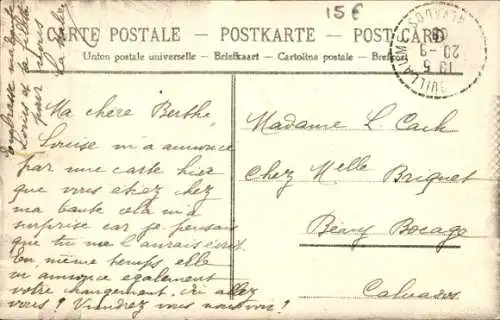 15€
CARTE POSTALE – POSTKARTE – POST CARD
Union postale universelle – Briefkaart – Cartolina postale –
Embrasse ma tante
Louise et ta fillette
pour nous
Ma chère Berthe,
Louise m'a annoncé
par une carte hier
que vous étiez chez
ma tante cela m'a
surprise car je pensais
que tu me l'aurais écrit.
En même temps elle
m'annonce également
votre changement. Où allez
vous? Viendrez vous nous voir?
Madame L.
Chez Melle Briquet
Bény Bocage
Calvados
20-9